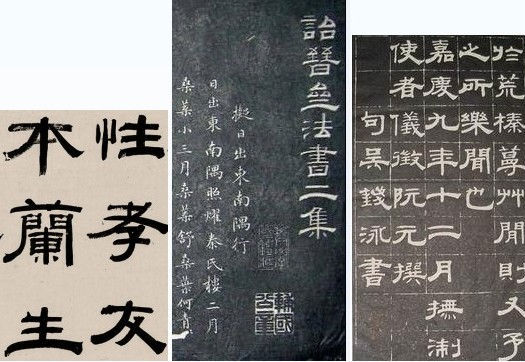 性孝友
本蘭生
詒晉亝法書二集
擬日出東南隅行
日出東南隅照耀秦氏樓二月
桑葉小三月桑葉舒桑葉何青
於荒榛蔓艸間則又予
之所樂聞也
嘉慶九年十二月撫淛
使者儀徵阮元撰
句吳錢泳書